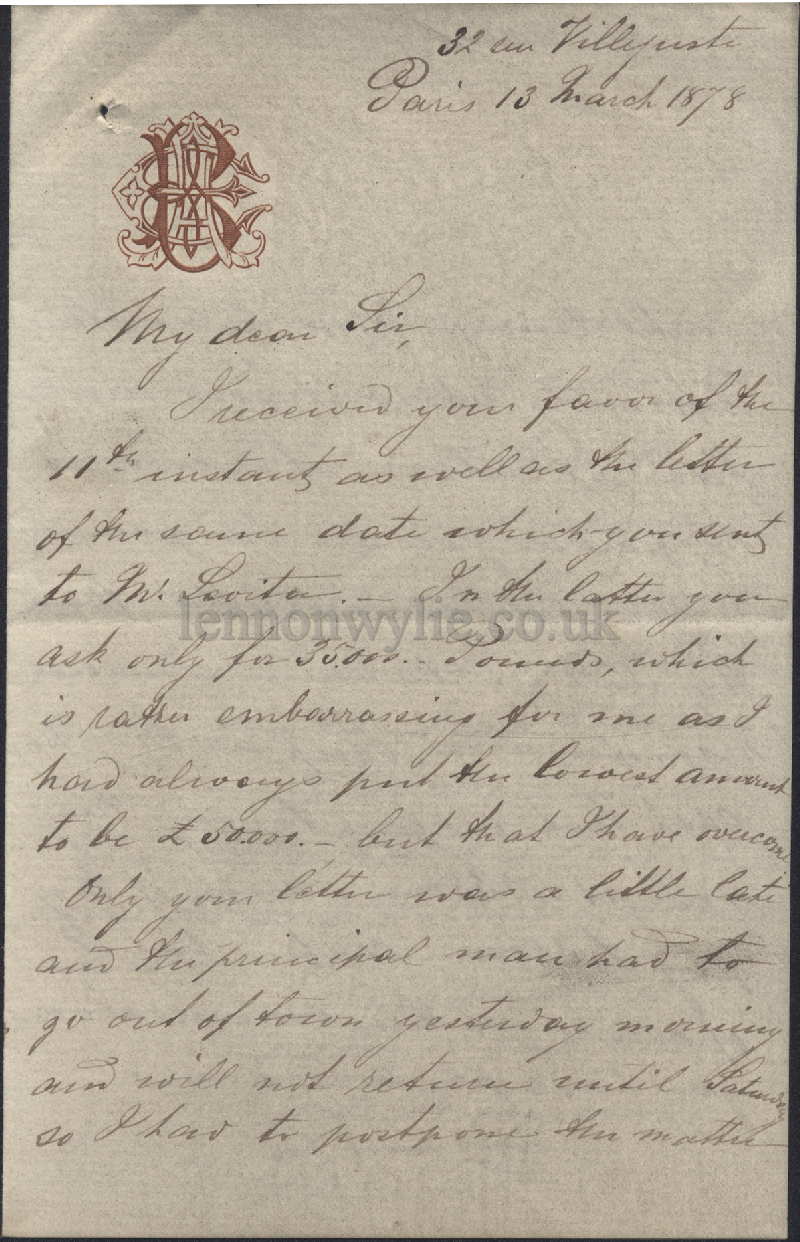 32 rue Villejuste
Paris 13 March 1878
My dear Sir,
I received your favor of the
11th instant, as well as the letter
of the same date which you sent
to Mr. Levita. – In the latter you
lennonwylie.co.uk
ask only for 35.000.- Pounds, which
is rather embarrassing for me as I
had always put the lowest amount
to be £ 50.000. – but that I have overcome
Only your letter was a little late
and the principal man had to
go out of town yesterday morning
and will not return until Saturday
so I had to postpone the matter